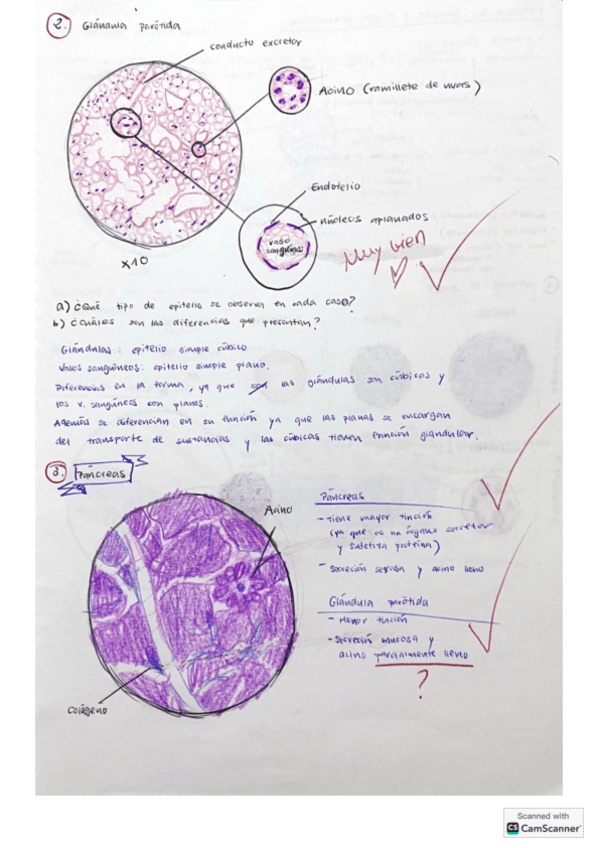 2. Glándula parótida
conducto excretor
Acino (ramillete de uvas)
Endotelio
núcleos aplanados
vaso
sanguíneo
x10
Muy bien
a) ¿Qué tipo de epitelio se observa en cada caso?
b) ¿Cuáles son las diferencias que presentan?
Glándulas: epitelio simple cúbico
Vasos sanguíneos: epitelio simple plano.
Diferencias en la forma, ya que son las glándulas son cúbicas y
los v. sangúneos son planos.
Además se diferencian en su función ya que las planas se encargan
del transporte de sustancias y las cúbicas tienen función glandular.
3. Páncreas
Acino
Colágeno
Páncreas
- Tiene mayor tinción
(ya que es un órgano secretor
y sintetiza proteína)
- Secreción serosa y acino lleno
Glándula parótida
- Menor tinción
- Secreción mucosa y
acino parcialmente lleno
?
Scanned with
CS CamScanner